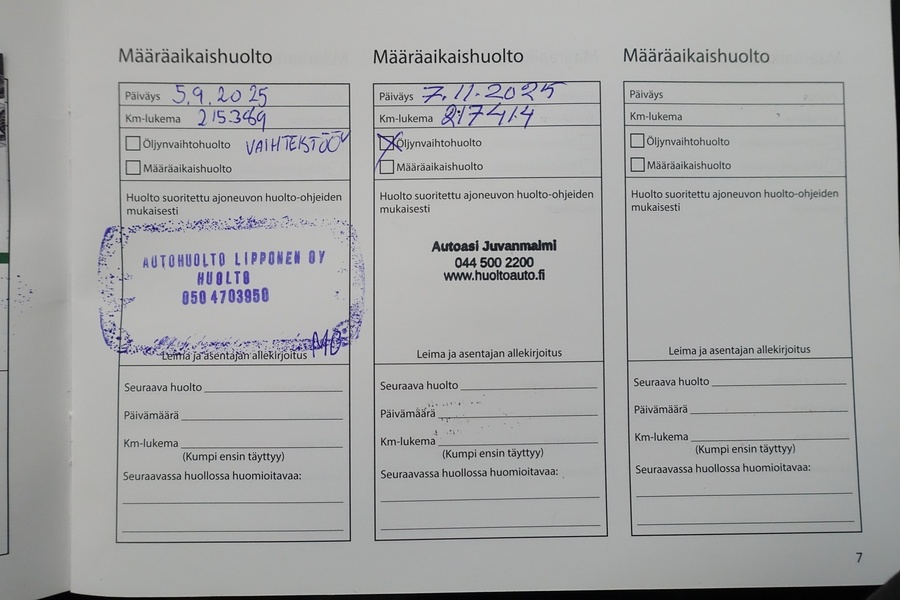 Määräaikaishuolto
Päiväys 5.9.2025
Km-lukema 215.389
Öljynvaihtohuolto VAIHTEISTÖÖV
Määräaikaishuolto
Huolto suoritettu ajoneuvon huolto-ohjeiden
mukaisesti
AUTOHUOLTO LIPPONEN OY
HUOLTO
050 4703950
Leima ja asentajan allekirjoitus
Seuraava huolto
Päivämäärä
Km-lukema
(Kumpi ensin täyttyy)
Seuraavassa huollossa huomioitavaa:
Määräaikaishuolto
Päiväys 7.11.2025
Km-lukema 217414
Öljynvaihtohuolto
Määräaikaishuolto
Huolto suoritettu ajoneuvon huolto-ohjeiden
mukaisesti
Autoasi Juvanmalmi
044 500 2200
www.huoltoauto.fi
Leima ja asentajan allekirjoitus
Seuraava huolto
Päivämäärä
Km-lukema
(Kumpi ensin täyttyy)
Seuraavassa huollossa huomioitavaa:
Määräaikaishuolto
Päiväys
Km-lukema
Öljynvaihtohuolto
Määräaikaishuolto
Huolto suoritettu ajoneuvon huolto-ohjeiden
mukaisesti
Leima ja asentajan allekirjoitus
Seuraava huolto
Päivämäärä
Km-lukema
(Kumpi ensin täyttyy)
Seuraavassa huollossa huomioitavaa:
7